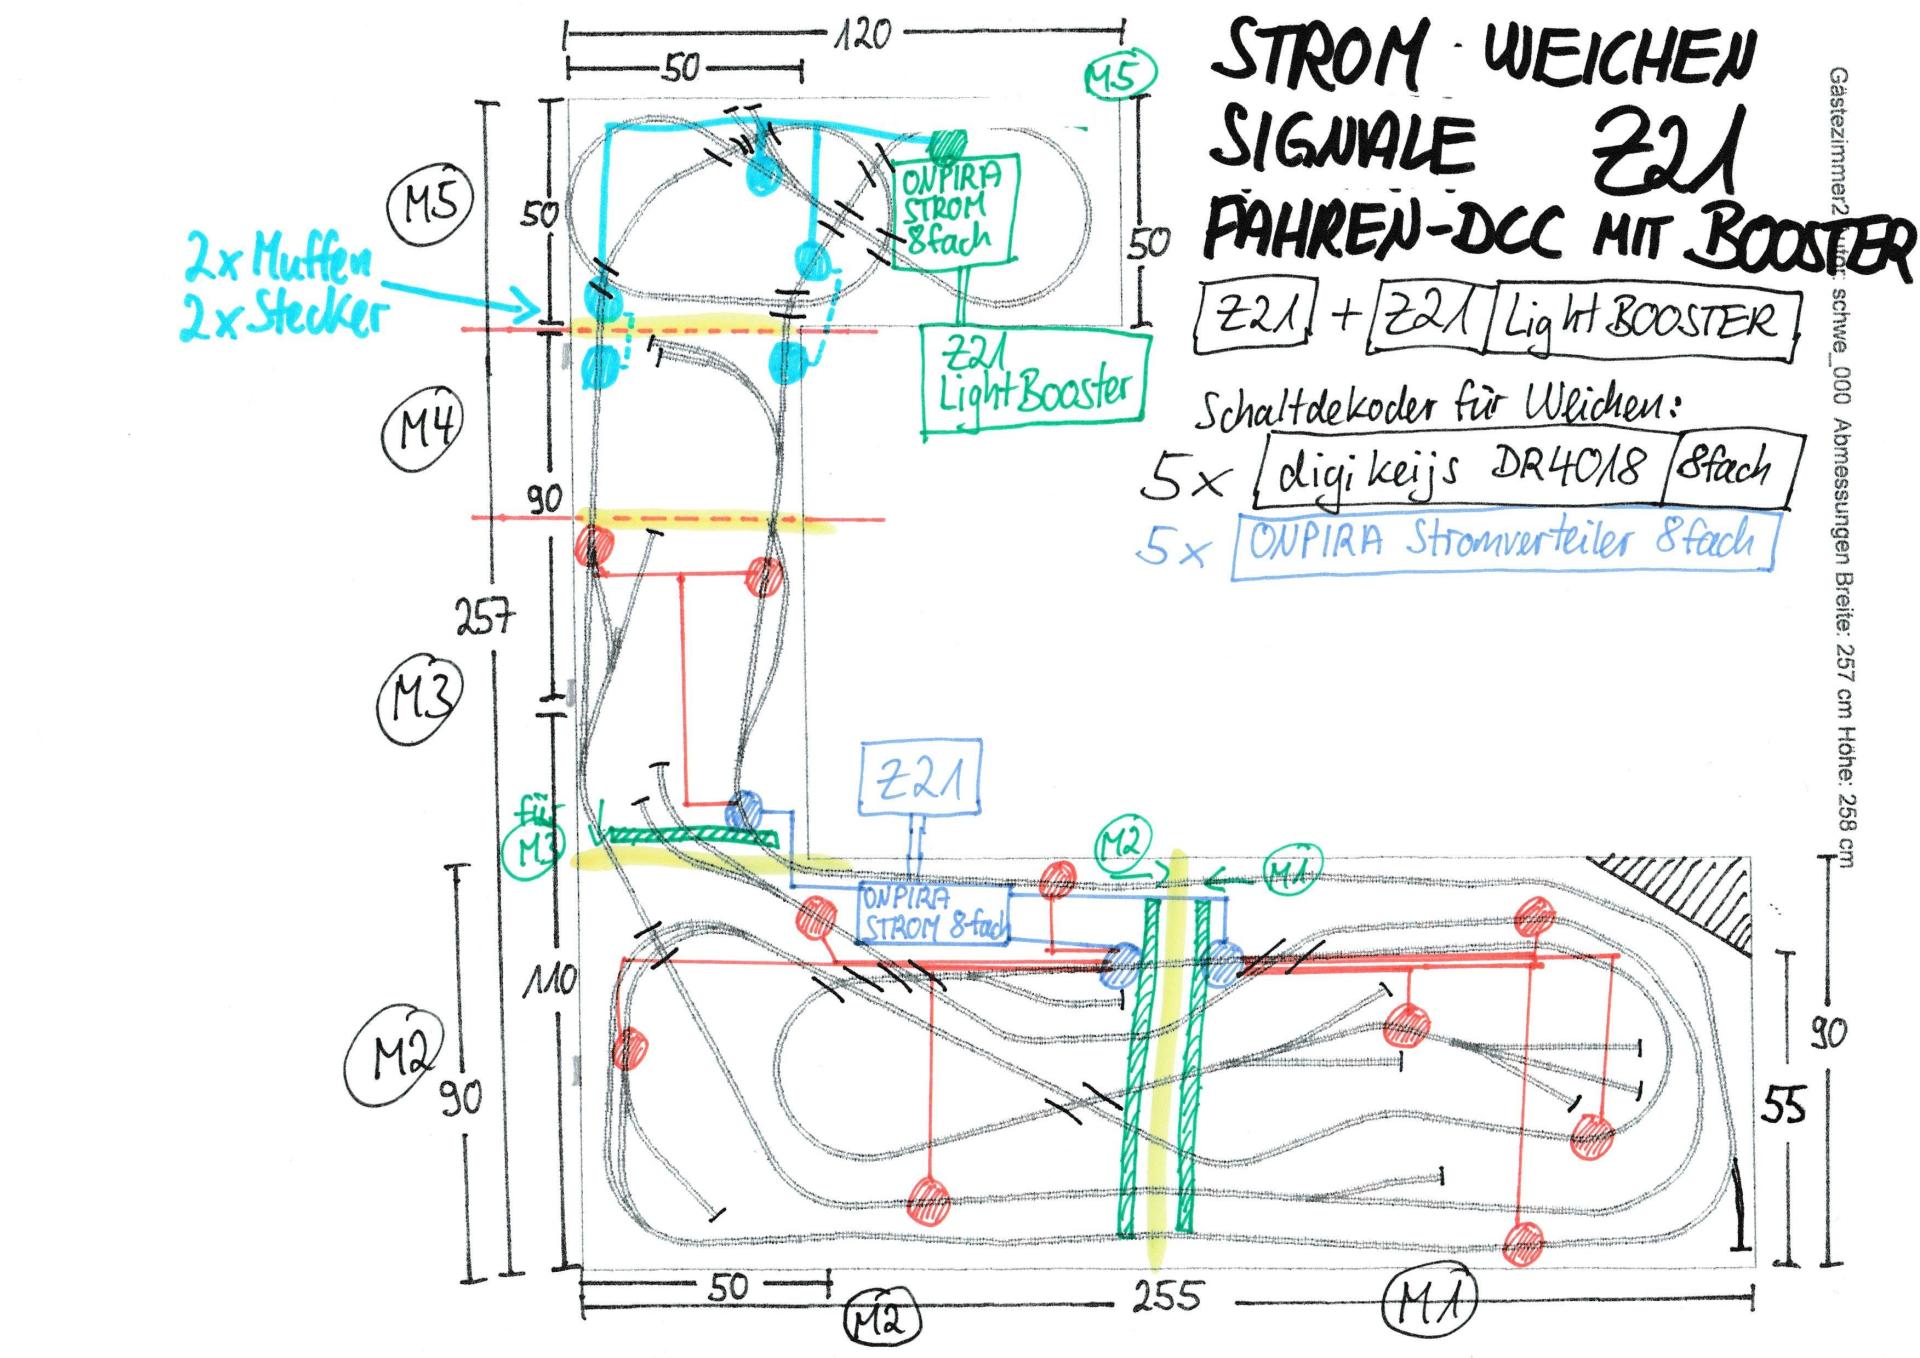 120
50
M5
STROM · WEICHEN
SIGNALE Z21
FAHREN-DCC MIT BOOSTER
Z21 + Z21 LightBOOSTER
Schaltdekoder für Weichen:
5x digikeijs DR4018 8fach
5x ONPIRA Stromverteiler 8fach
M5
50
50
ONPIRA
STROM
8fach
2x Muffen
2x Stecker
Z21
LightBooster
M4
90
257
M3
Z21
für
M3
M2
M1
ONPIRA
STROM 8-fach
110
M2
90
90
55
50
255
M2
M1
Abmessungen Breite: 257 cm Höhe: 258 cm
schwe_000
Gästezimmer2